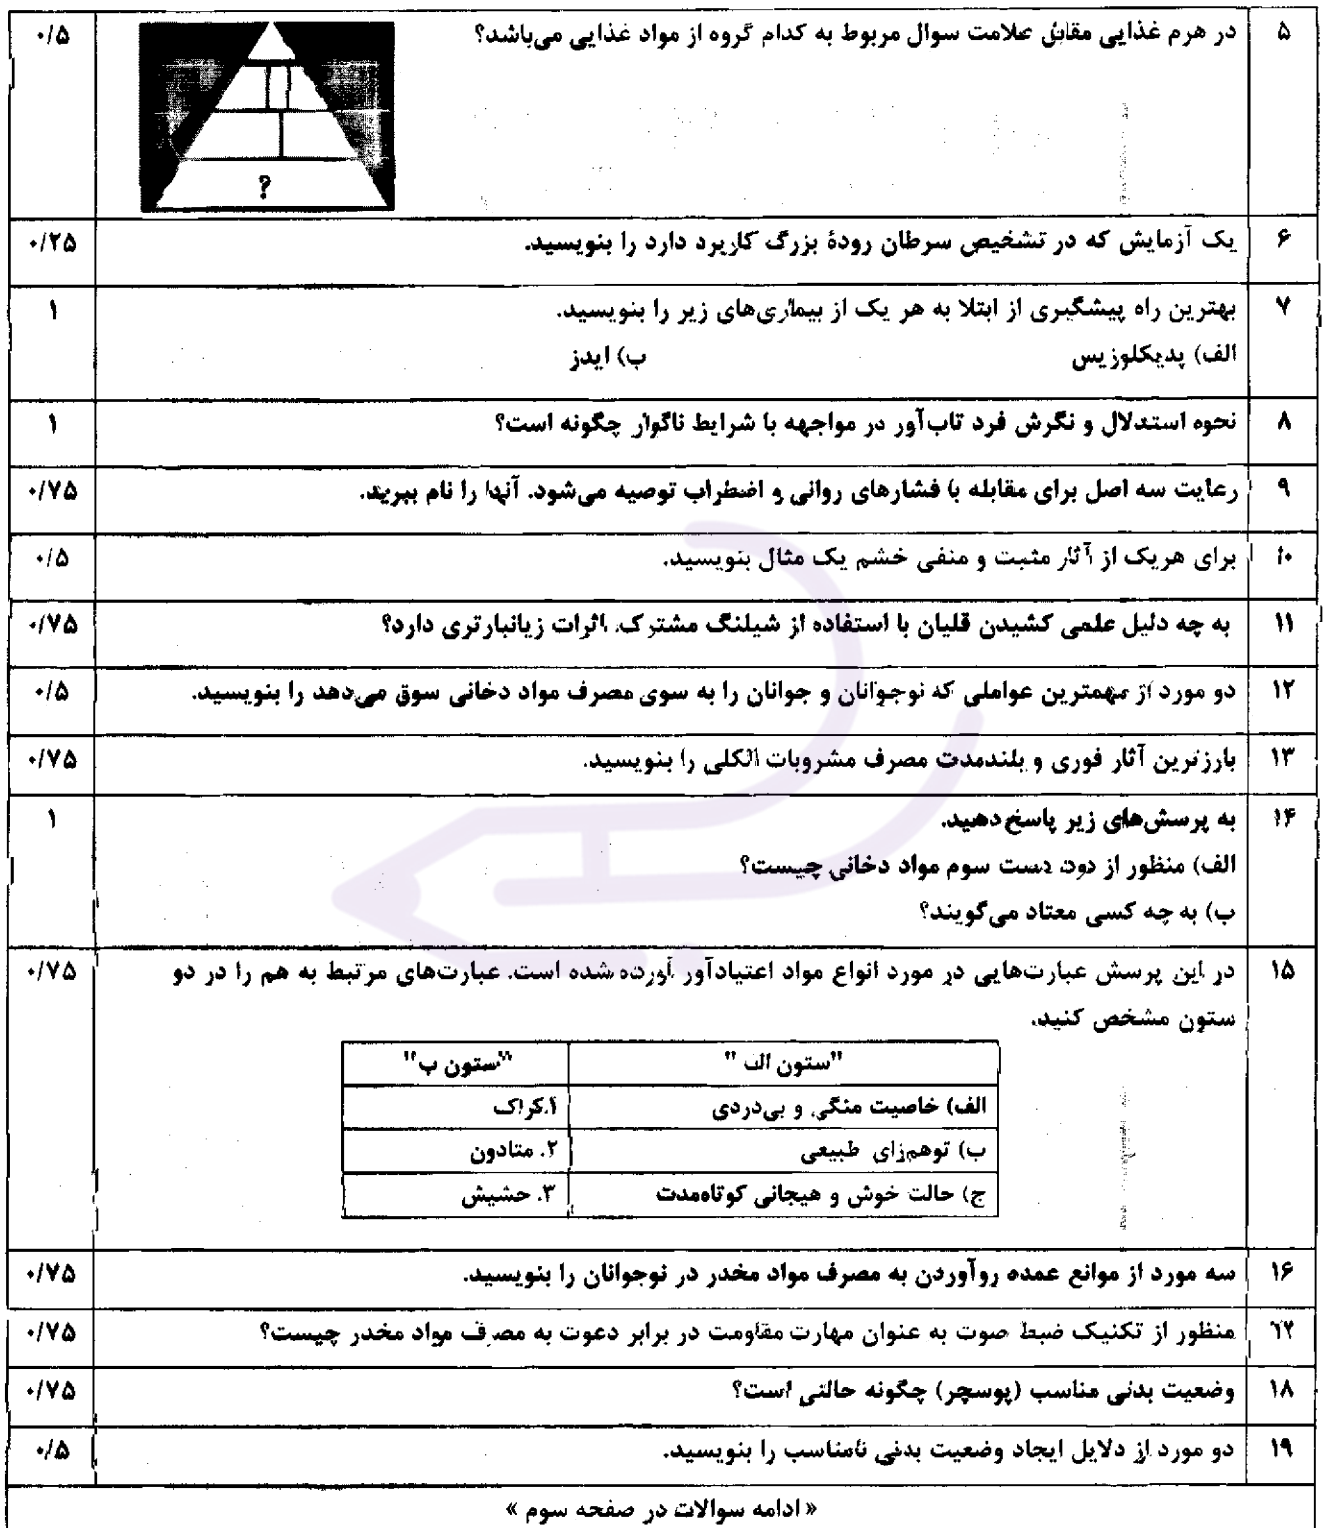 ۵ در هرم غذایی مقابل علامت سوال مربوط به کدام گروه از مواد غذایی می‌باشد؟ ۰/۵
?
۶ یک آزمایش که در تشخیص سرطان رودهٔ بزرگ کاربرد دارد را بنویسید. ۰/۲۵
۷ بهترین راه پیشگیری از ابتلا به هر یک از بیماری‌های زیر را بنویسید. ۱
الف) پدیکلوزیس ب) ایدز
۸ نحوه استدلال و نگرش فرد تاب‌آور در مواجهه با شرایط ناگوار چگونه است؟ ۱
۹ رعایت سه اصل برای مقابله با فشارهای روانی و اضطراب توصیه می‌شود. آنها را نام ببرید. ۰/۷۵
۱۰ برای هریک از آثار مثبت و منفی خشم یک مثال بنویسید. ۰/۵
۱۱ به چه دلیل علمی کشیدن قلیان با استفاده از شیلنگ مشترک، اثرات زیانبارتری دارد؟ ۰/۷۵
۱۲ دو مورد از مهمترین عواملی که نوجوانان و جوانان را به سوی مصرف مواد دخانی سوق می‌دهد را بنویسید. ۰/۵
۱۳ بارزترین آثار فوری و بلندمدت مصرف مشروبات الکلی را بنویسید. ۰/۷۵
۱۴ به پرسش‌های زیر پاسخ دهید. ۱
الف) منظور از دود دست سوم مواد دخانی چیست؟
ب) به چه کسی معتاد می‌گویند؟
۱۵ در این پرسش عبارت‌هایی در مورد انواع مواد اعتیادآور آورده شده است. عبارت‌های مرتبط به هم را در دو ۰/۷۵
ستون مشخص کنید.
"ستون الف " "ستون ب"
الف) خاصیت منگی و بی‌دردی ۱.کراک
ب) توهم‌زای طبیعی ۲. متادون
ج) حالت خوش و هیجانی کوتاه‌مدت ۳. حشیش
۱۶ سه مورد از موانع عمده روآوردن به مصرف مواد مخدر در نوجوانان را بنویسید. ۰/۷۵
۱۷ منظور از تکنیک ضبط صوت به عنوان مهارت مقاومت در برابر دعوت به مصرف مواد مخدر چیست؟ ۰/۷۵
۱۸ وضعیت بدنی مناسب (پوسچر) چگونه حالتی است؟ ۰/۷۵
۱۹ دو مورد از دلایل ایجاد وضعیت بدنی نامناسب را بنویسید. ۰/۵
« ادامه سوالات در صفحه سوم »